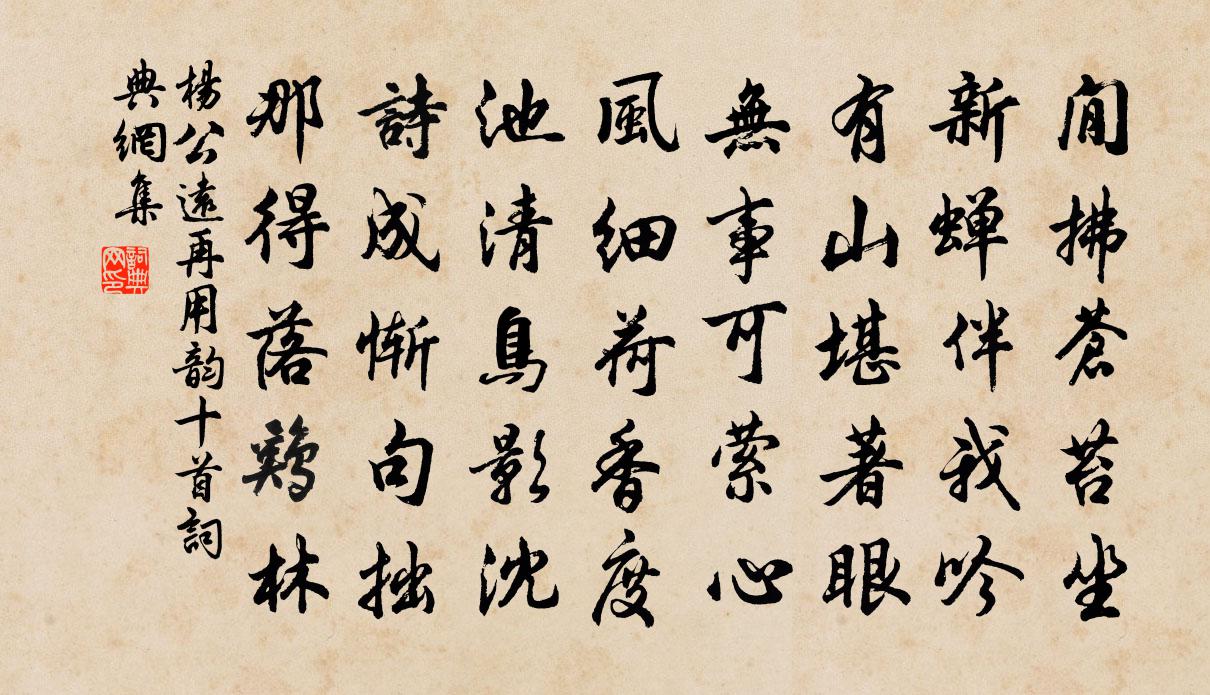 閒拂蒼苔坐
新蟬伴我吟
有山堪著眼
無事可縈心
風細荷香度
池清鳥影沈
詩成慚句拙
那得落鶏林
楊公遠再用韵十首詞
典網集
詞典
网印